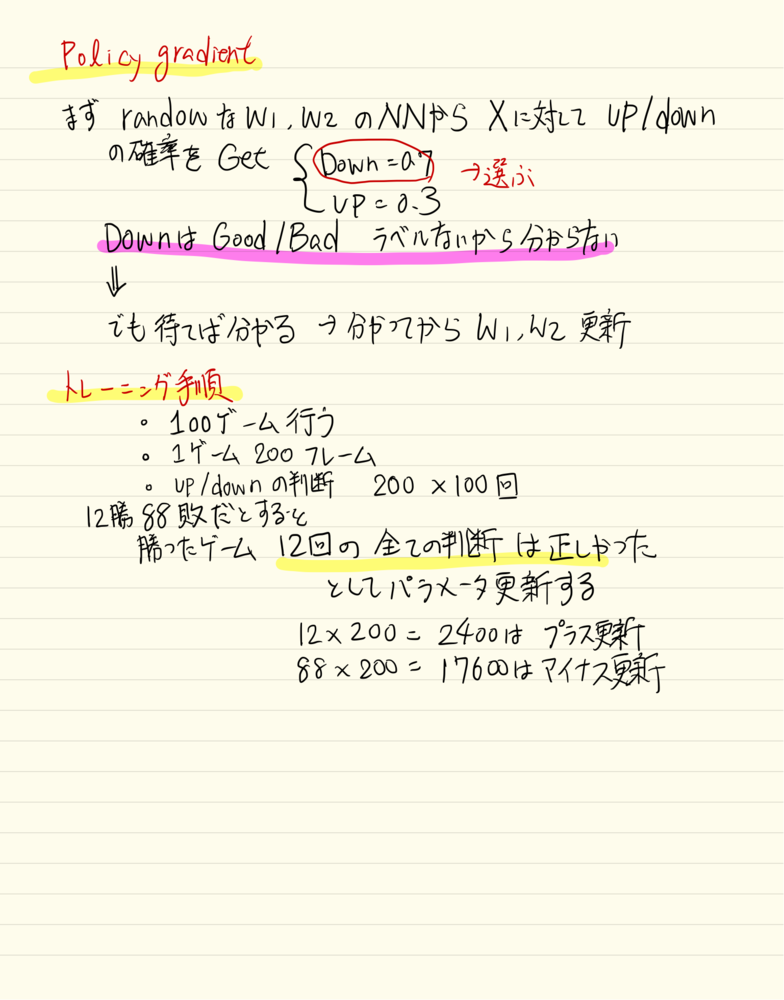 Policy gradient
まず randowなW1,W2のNNから Xに対して UP/down
の確率を Get { Down=0.7 →選ぶ
UP=0.3
Downは Good/Bad ラベルないから分からない
⇓
でも待てば分かる →分かってから W1,W2 更新
トレーニング手順
・100ゲーム行う
・1ゲーム 200フレーム
・up/downの判断 200×100回
12勝88敗だとすると
勝ったゲーム 12回の全ての判断は正しかった
としてパラメータ更新する
12×200=2400は プラス更新
88×200=17600はマイナス更新